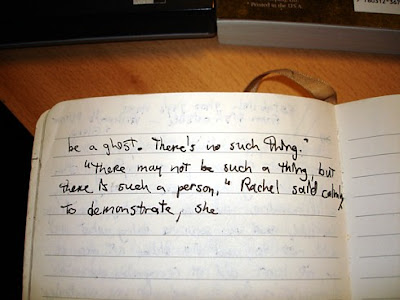 * Printed in the U.S.A.
be a ghost. There's no such thing."
"There may not be such a thing, but
there is such a person," Rachel said calmly.
To demonstrate, she